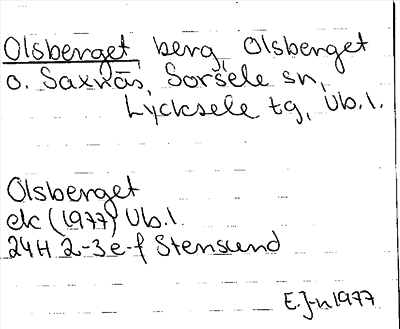 Olsberget, berg, Olsberget
o. Saxnäs, Sorsele sn,
Lycksele tg, Vb.l.
Olsberget
ek (1977) Vb.l.
24H 2-3 e-f Stensund
E.J-n 1977